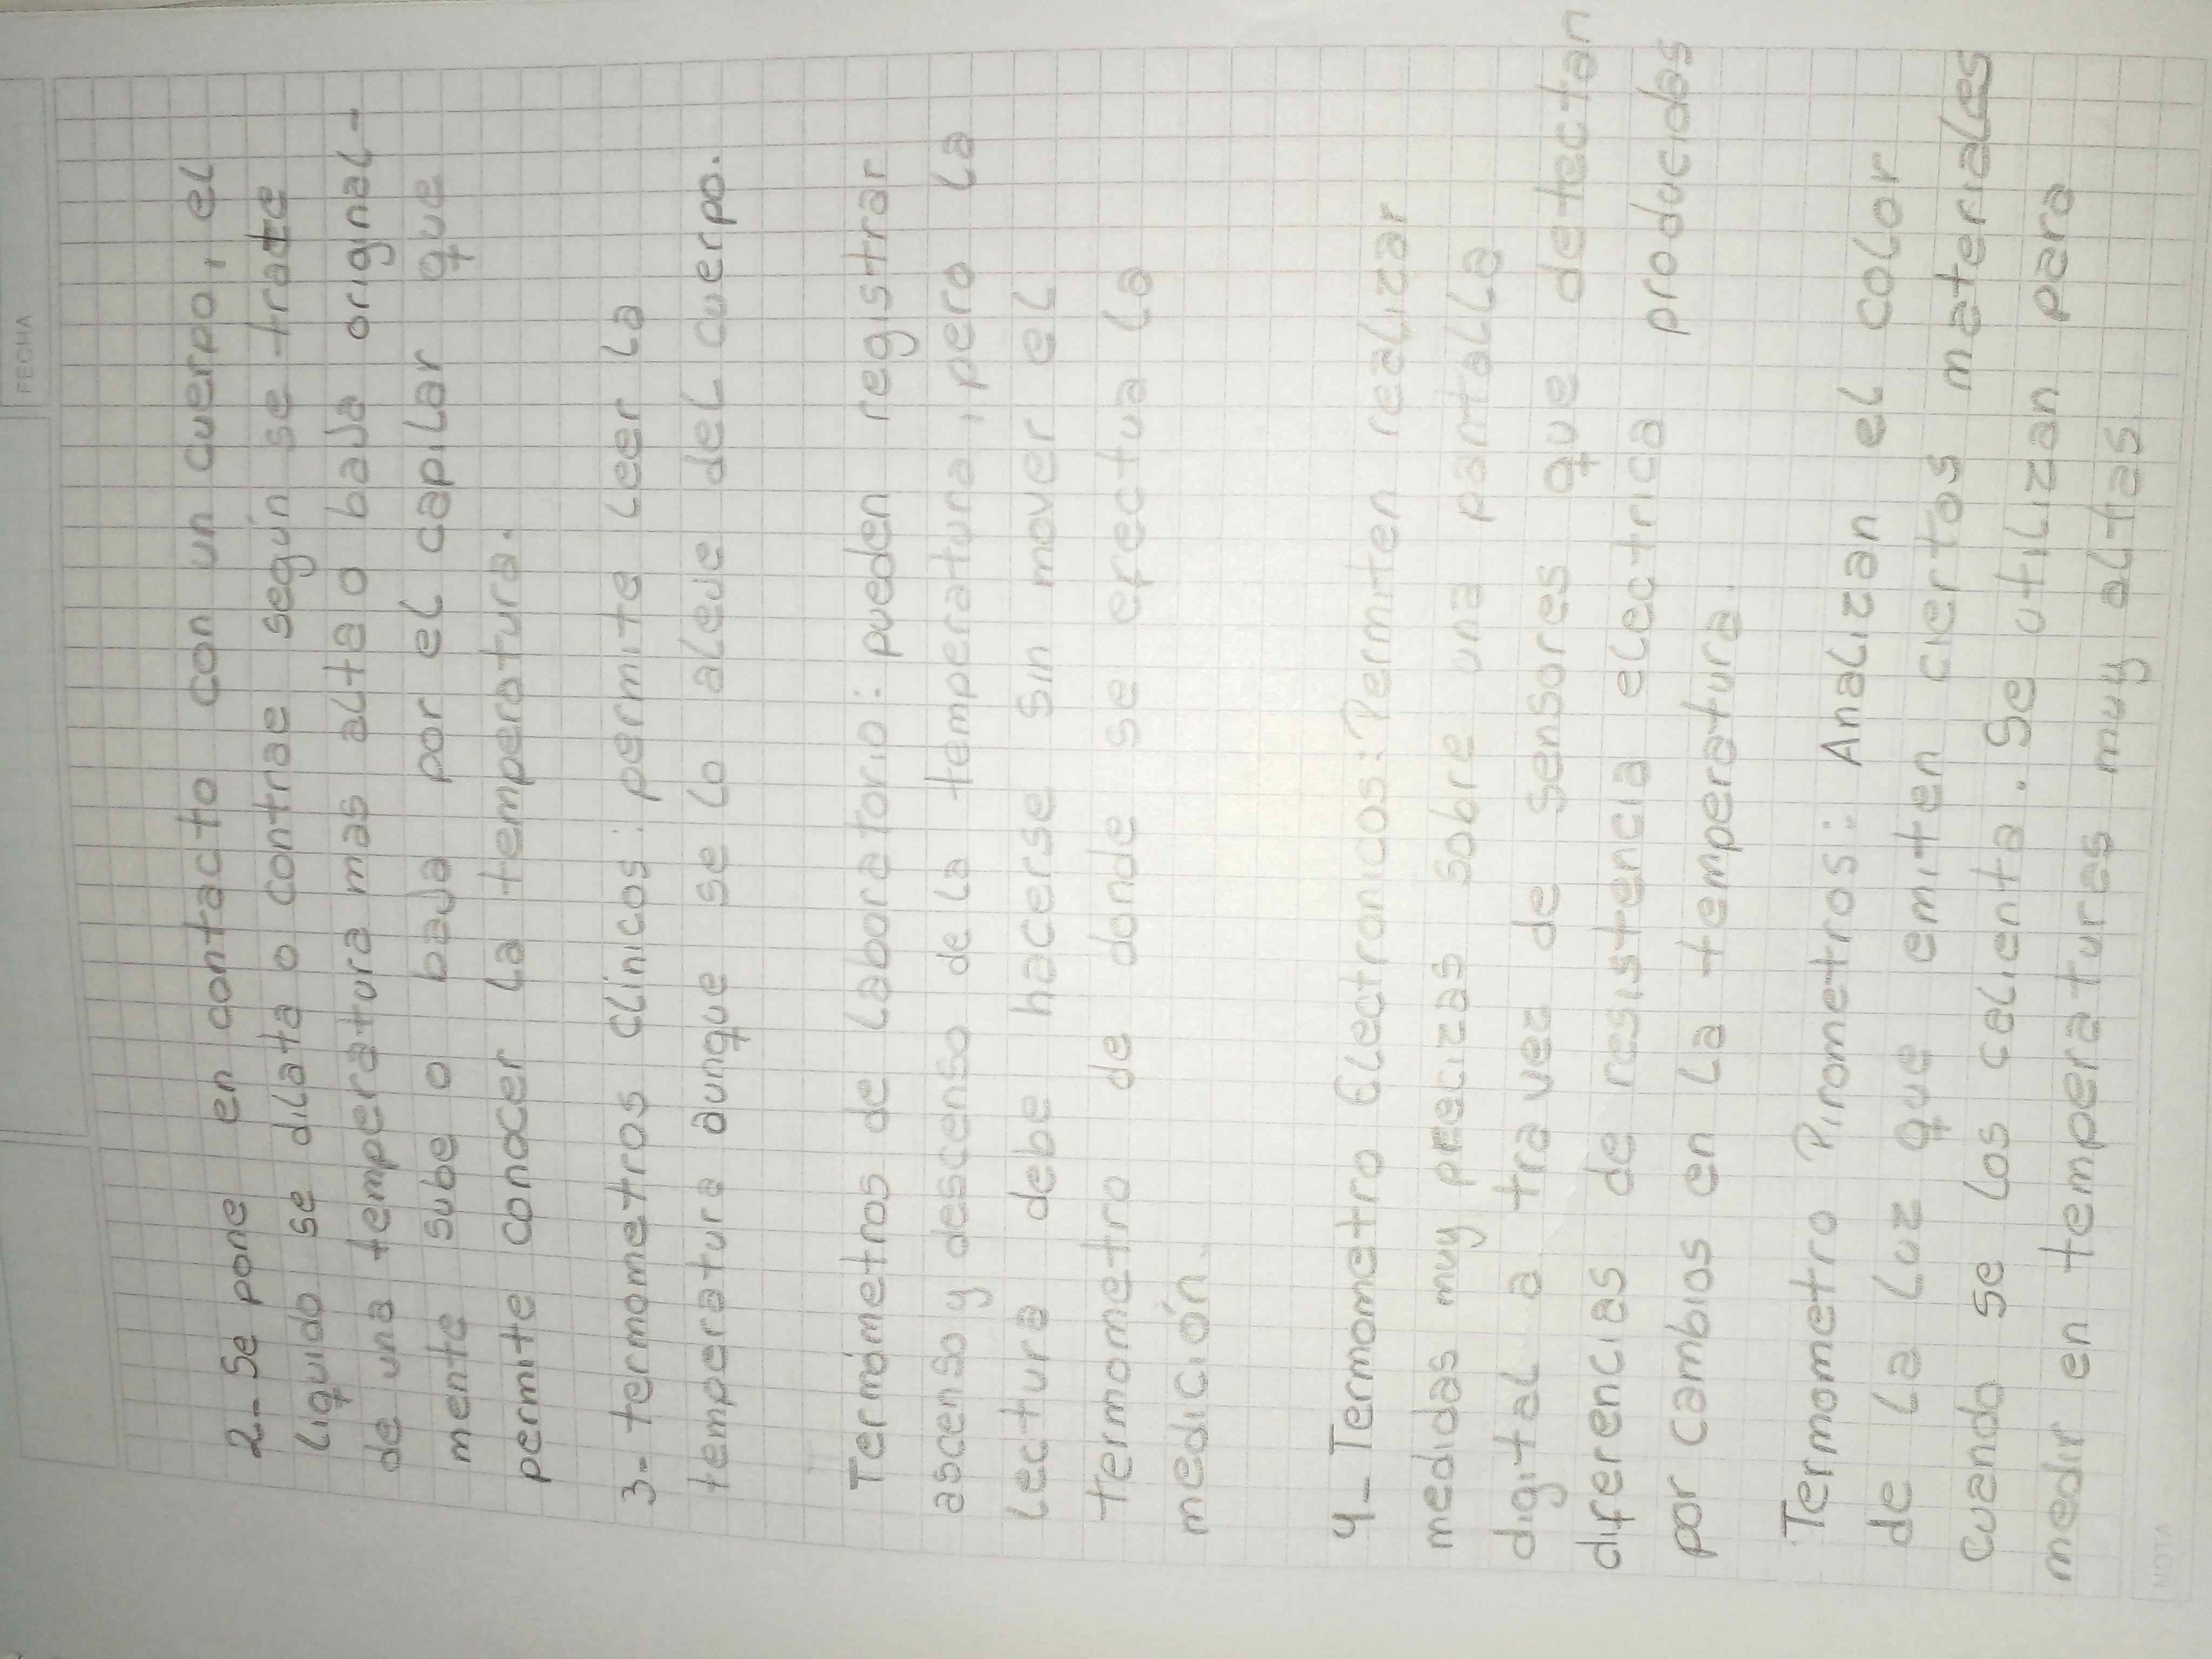 FECHA
2- Se pone en contacto con un cuerpo, el
liquido se dilata o contrae según se trate
de una temperatura mas alta o baja orignal-
mente sube o baja por el capilar que
permite conocer la temperatura.
3- termometros clínicos: permite leer la
temperatura aunque se lo aleje del cuerpo.
Termómetros de laboratorio: pueden registrar
ascenso y descenso de la temperatura, pero la
lectura debe hacerse sin mover el
termometro de donde se efectua la
medición.
4- Termometro Electronicos: Permiten realizar
medidas muy precizas sobre una pantalla
digital a travez de sensores que detectan
diferencias de resistencia electrica producidas
por cambios en la temperatura.
Termometro Pirometros: Analizan el color
de la luz que emiten ciertos materiales
cuando se los calienta. Se utilizan para
medir en temperatures muy altas.
NOTA